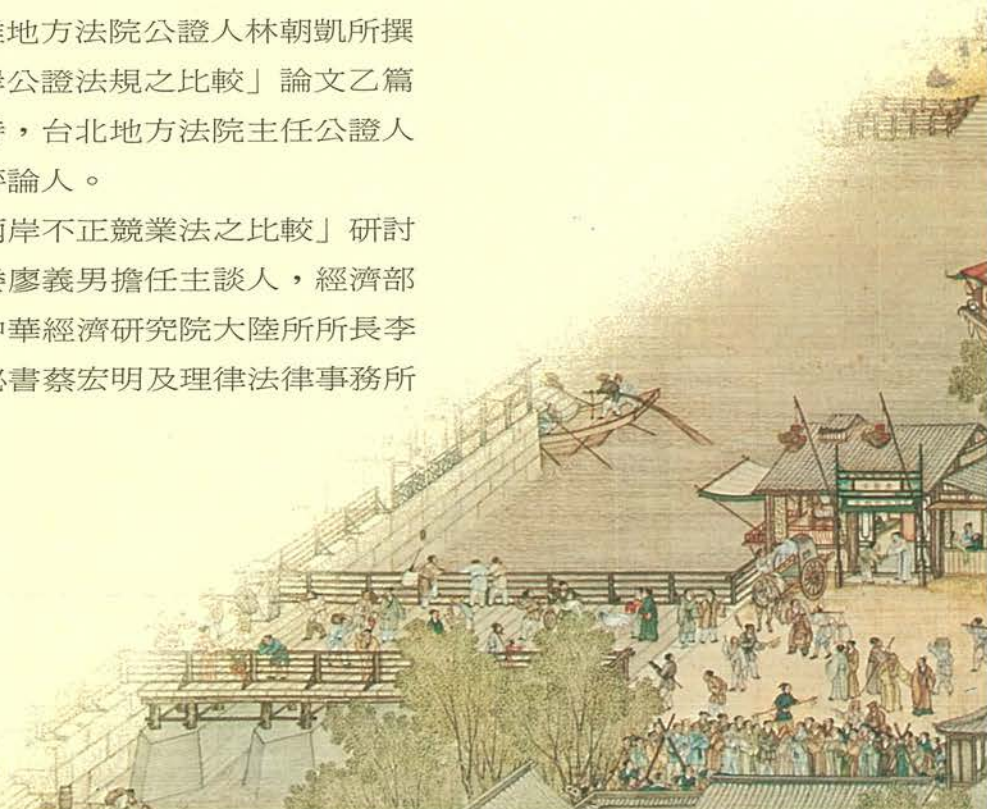 地方法院公證人林朝凱所撰
公證法規之比較」論文乙篇
，台北地方法院主任公證人
論人。
岸不正競業法之比較」研討
廖義男擔任主談人，經濟部
華經濟研究院大陸所所長李
書蔡宏明及理律法律事務所